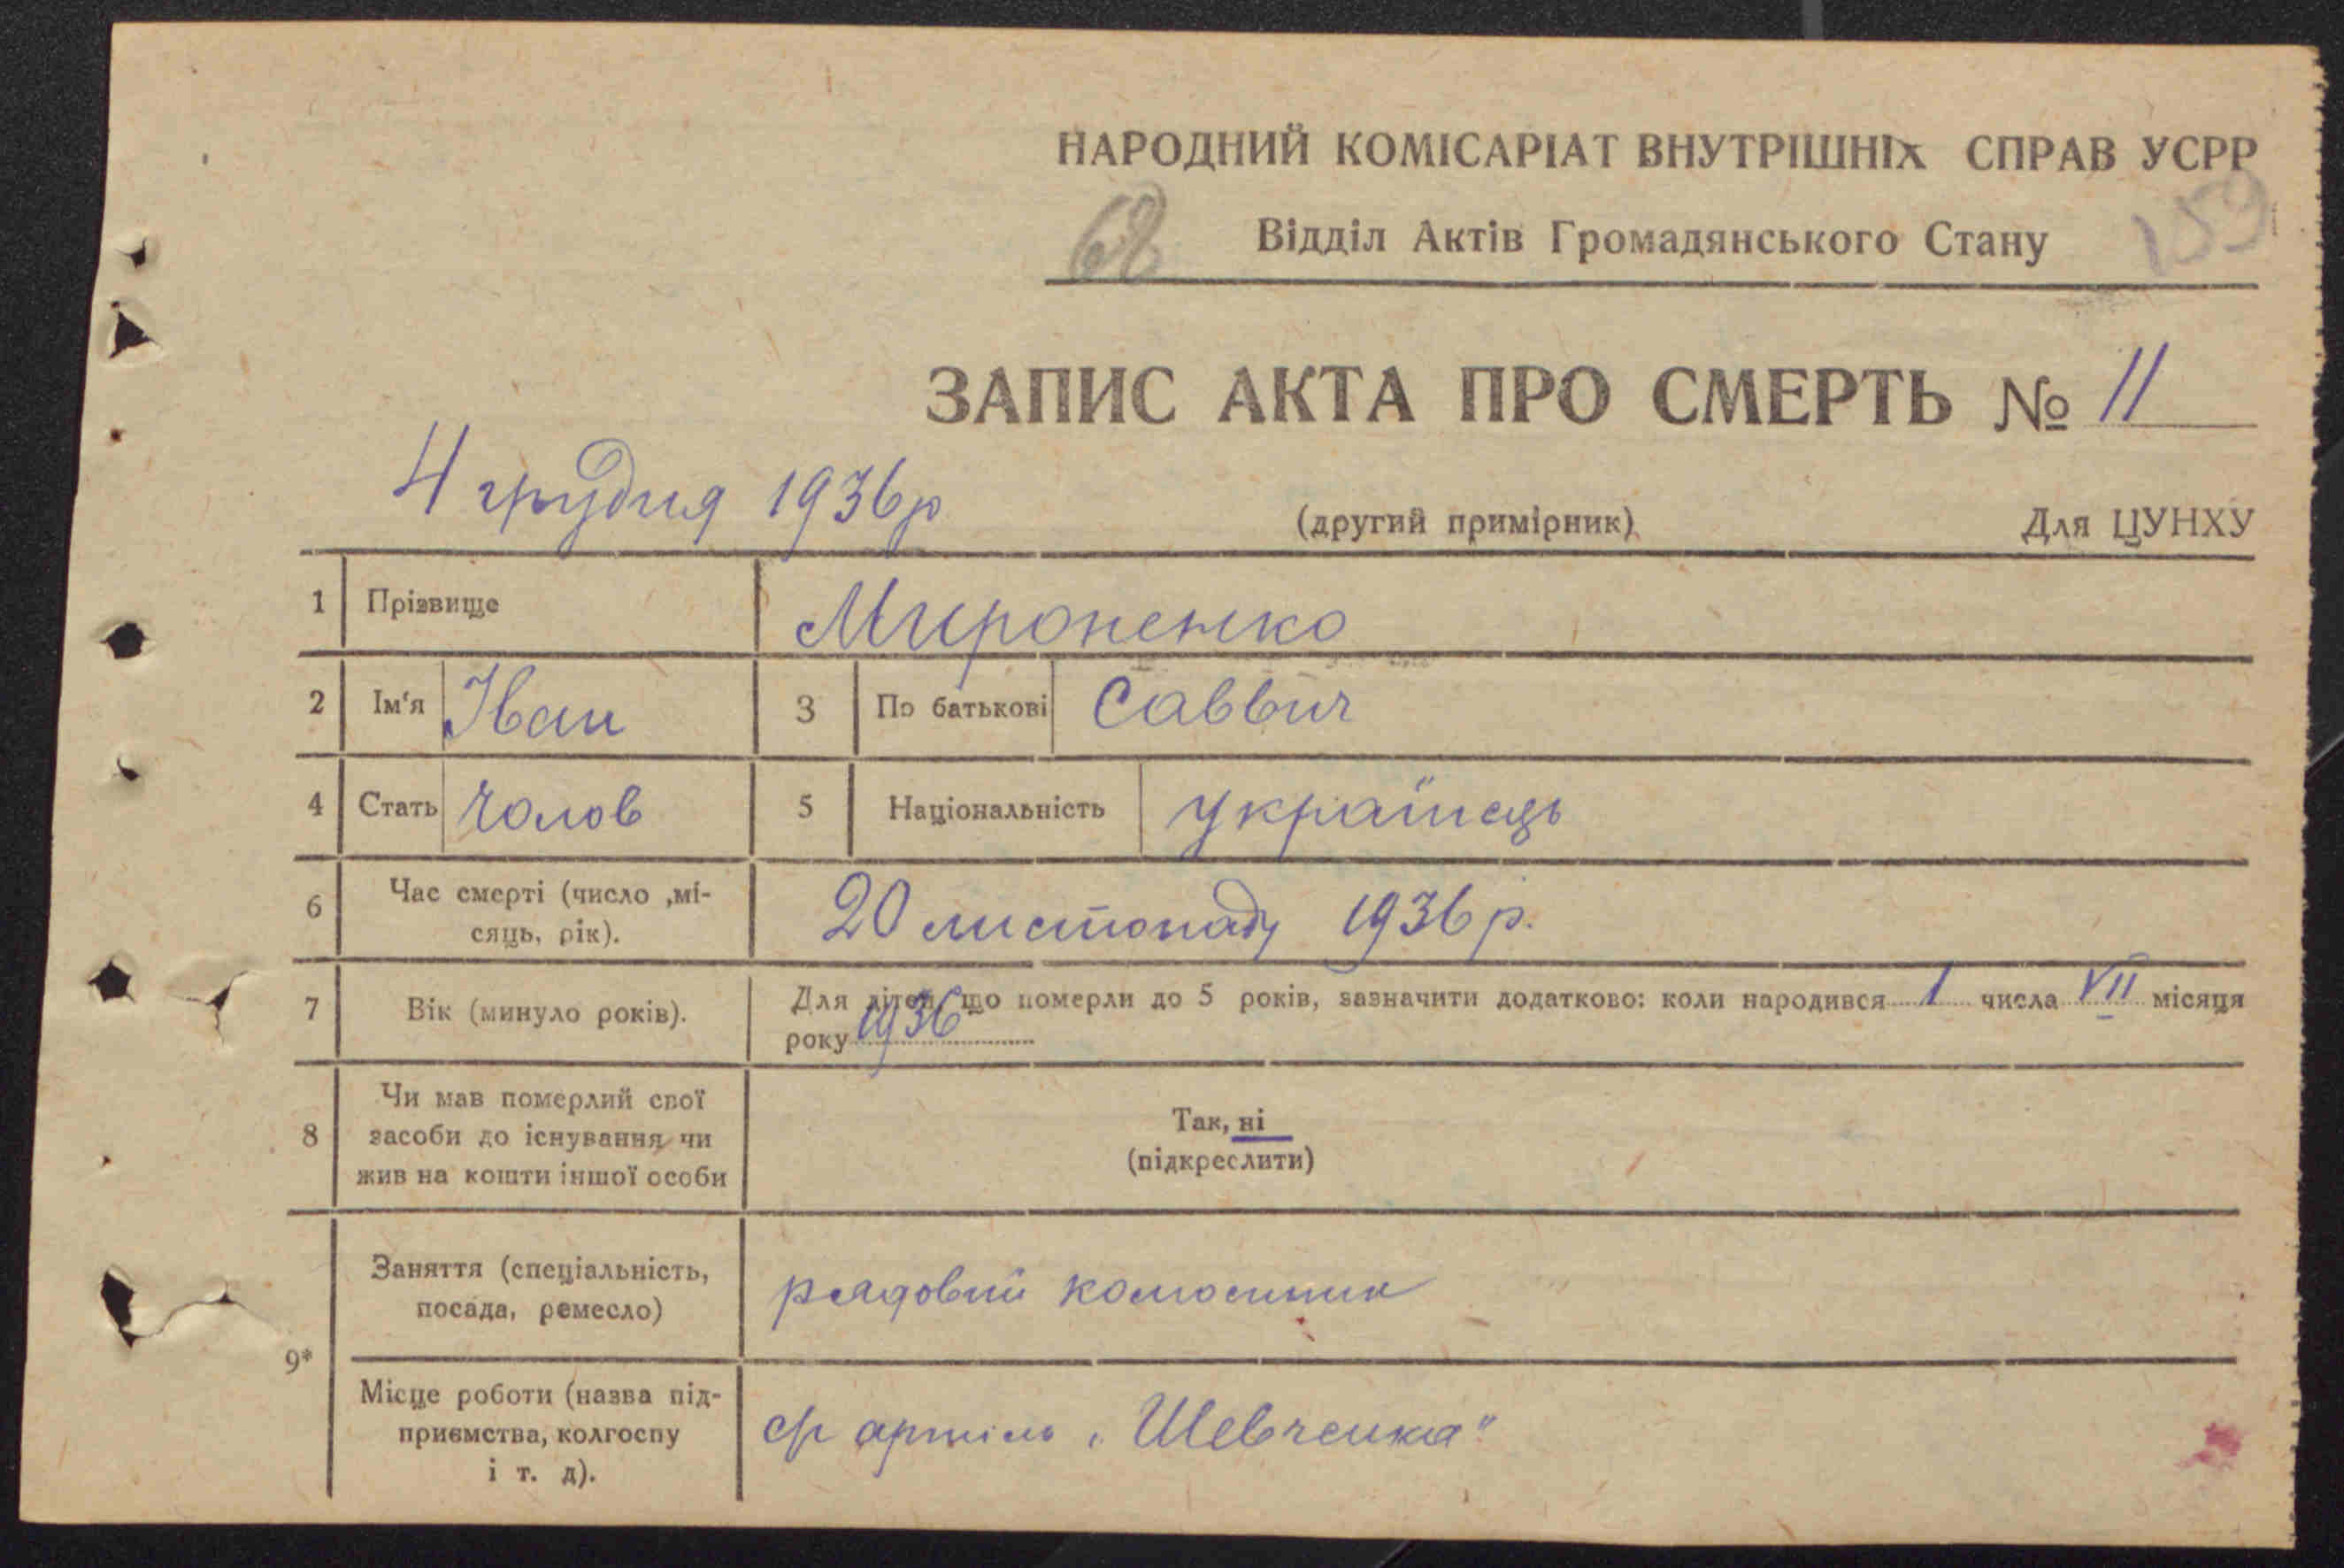 НАРОДНИЙ КОМІСАРІАТ ВНУТРІШНІХ СПРАВ УСРР
62 Відділ Актів Громадянського Стану 159
ЗАПИС АКТА ПРО СМЕРТЬ № 11
4 грудня 1936р
(другий примірник) Для ЦУНХУ
1 Прізвище Мироненко
2 Ім'я Іван 3 По батькові Саввич
4 Стать чолов 5 Національність українець
6 Час смерті (число ,мі-
сяць, рік). 20 листопаду 1936 р.
7 Вік (минуло років). Для дітей, що померли до 5 років, зазначити додатково: коли народився 1 числа VII місяця
року 1936
8 Чи мав померлий свої
засоби до існування чи
жив на кошти іншої особи
Так, ні
(підкреслити)
9*
Заняття (спеціальність,
посада, ремесло)
рядовий колгоспник
Місце роботи (назва під-
приємства, колгоспу
і т. д).
с/г артіль „Шевченка"